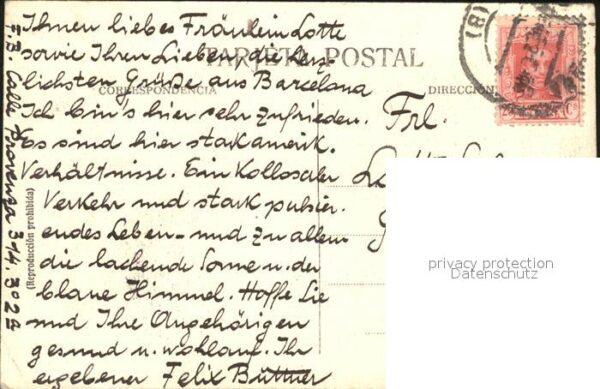 Ihnen liebes Fräulein Lotte
sowie Ihren Lieben, die herz-
lichsten Grüße aus Barcelona
Ich bin's hier sehr zufrieden.
Es sind hier stark amerik.
Verhältnisse. Ein Kollosaler
Verkehr und stark pulsier-
endes Leben und zu allem
die lachende Sonne u. der
blaue Himmel. Hoffe Sie
und Ihre Angehörigen
gesund u. wohlauf. Ihr
ergebener Felix Büttner
F.B. Calle Provenza 314. 3º 2ª
TARJETA POSTAL
CORRESPONDENCIA
DIRECCIÓN
(Reproducción prohibida)
Frl.
(8)
privacy protection
Datenschutz